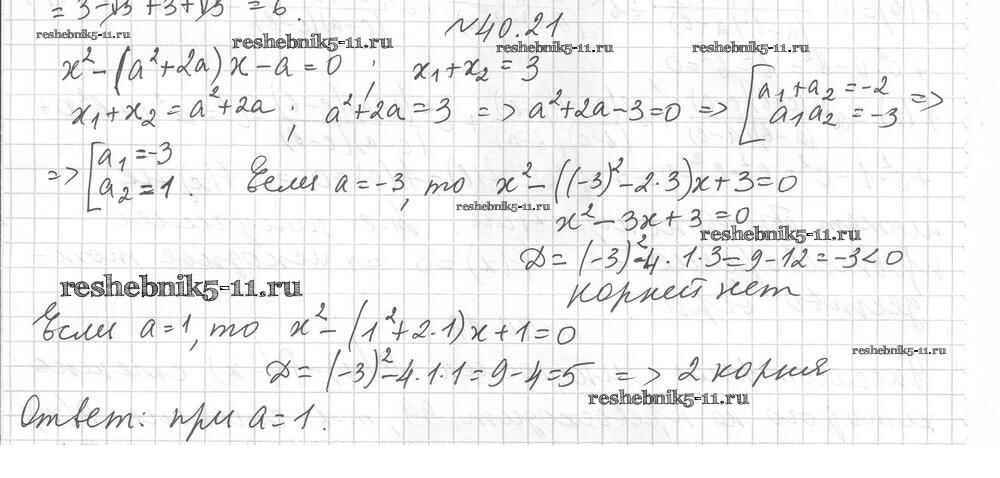 = 3-√3 +3+√3 = 6.
№40.21
reshebnik5-11.ru reshebnik5-11.ru reshebnik5-11.ru reshebnik5-11.ru
x²-(a²+2a)x-a=0; x₁+x₂=3
x₁+x₂=a²+2a; a²+2a=3 => a²+2a-3=0 => [a₁+a₂=-2 =>
a₁a₂=-3
=> [a₁=-3
a₂=1. Если a=-3, то x²-((-3)²-2·3)x+3=0
reshebnik5-11.ru
x²-3x+3=0
reshebnik5-11.ru
D=(-3)²-4·1·3=9-12=-3<0
reshebnik5-11.ru
корней нет
Если a=1, то x²-(1²+2·1)x+1=0
reshebnik5-11.ru
D=(-3)²-4·1·1=9-4=5 => 2 корня
reshebnik5-11.ru
Ответ: при a=1.